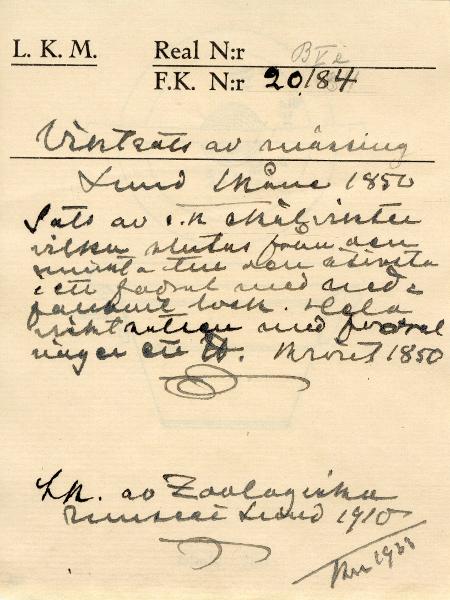 L. K. M. Real N:r B V e
F.K. N:r 20184
Viktsats av mässing
Lund Skåne 1850
Sats av s.k skålvikter
vilka slutas från den
minsta till den största
i ett fodral med
lock. Hela
viktsatsen med fodral
väger ett ℔. 1850
Sk. av Zoologiska
museet Lund 1910
1933